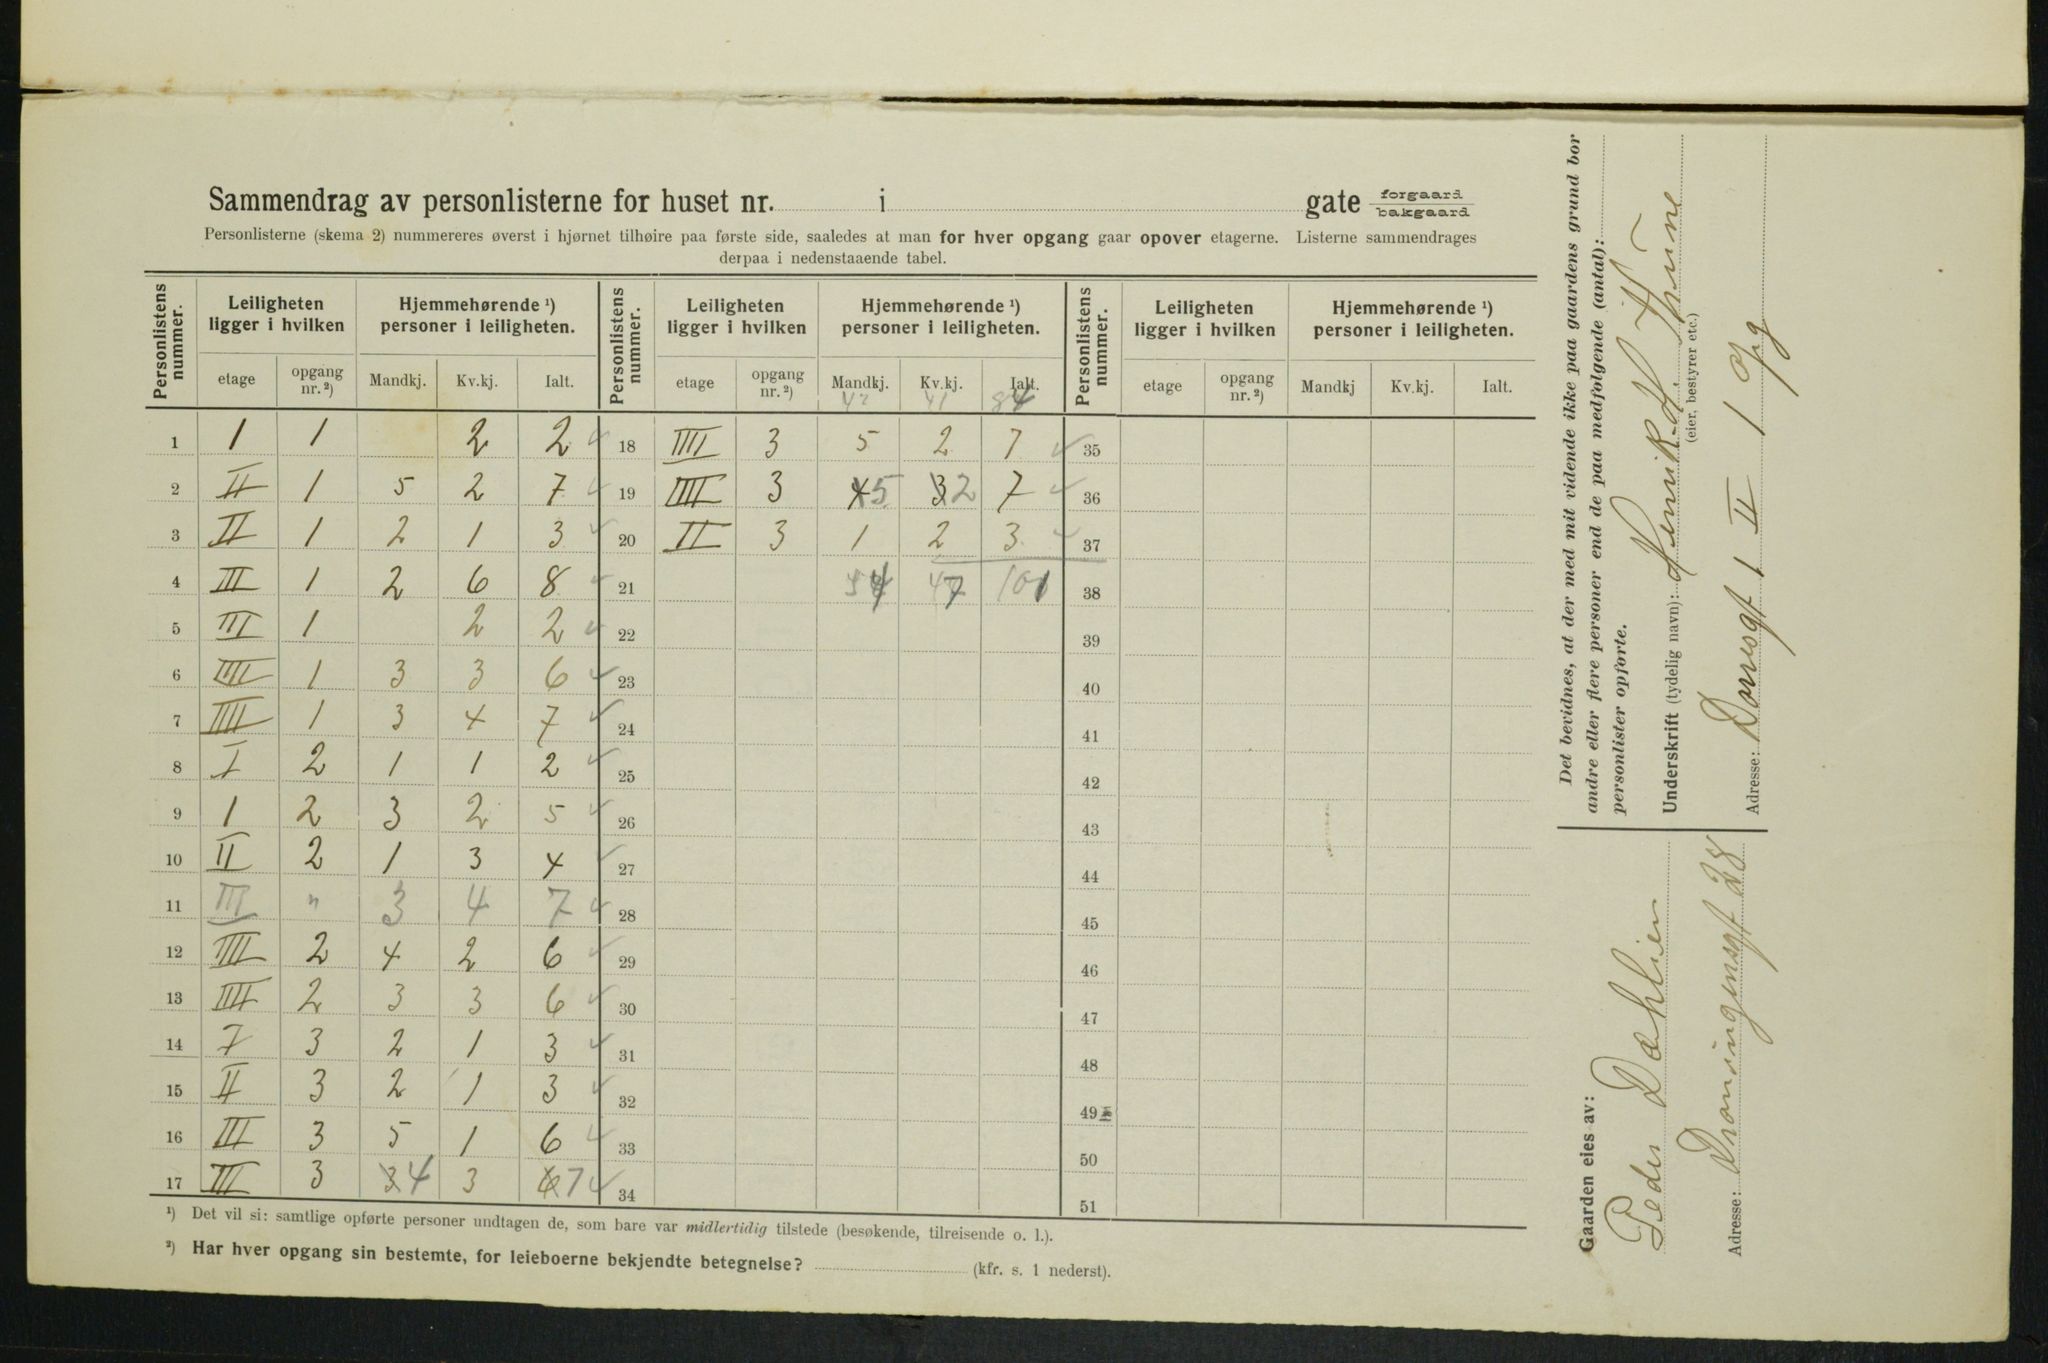 Sammendrag av personlisterne for huset nr. i gate forgaard bakgaard
Personlisterne (skema 2) nummereres øverst i hjørnet tilhøire paa første side, saaledes at man for hver opgang gaar opover etagerne. Listerne sammendrages
derpaa i nedenstaaende tabel.
Personlistens nummer. Leiligheten ligger i hvilken Hjemmehørende ¹) personer i leiligheten. Personlistens nummer. Leiligheten ligger i hvilken Hjemmehørende ¹) personer i leiligheten. Personlistens nummer. Leiligheten ligger i hvilken Hjemmehørende ¹) personer i leiligheten.
etage opgang nr. ²) Mandkj. Kv.kj. Ialt. etage opgang nr. ²) Mandkj. Kv.kj. Ialt. etage opgang nr. ²) Mandkj Kv.kj. Ialt.
41 84
1 1 1 2 2 18 IIII 3 5 2 7 35
2 II 1 5 2 7 19 IIII 3 4 5 3 2 7 36
3 II 1 2 1 3 20 II 3 1 2 3 37
4 III 1 2 6 8 21 47 101 38
5 III 1 2 2 22 39
6 IIII 1 3 3 6 23 40
7 IIII 1 3 4 7 24 41
8 I 2 1 1 2 25 42
9 1 2 3 2 5 26 43
10 II 2 1 3 4 27 44
11 III " 3 4 7 28 45
12 IIII 2 4 2 6 29 46
13 IIII 2 3 3 6 30 47
14 7 3 2 1 3 31 48
15 II 3 2 1 3 32 49
16 III 3 5 1 6 33 50
17 III 3 3 4 3 6 7 34 51
¹) Det vil si: samtlige opførte personer undtagen de, som bare var midlertidig tilstede (besøkende, tilreisende o. l.).
²) Har hver opgang sin bestemte, for leieboerne bekjendte betegnelse? (kfr. s. 1 nederst).
Det bevidnes, at der med mit vidende ikke paa gaardens grund bor
andre eller flere personer end de paa medfølgende (antal):
personlister opførte.
Underskrift (tydelig navn): Henrik H Thune
(eier, bestyrer etc.)
Adresse: 1 II 1 Opg
Gaarden eies av:
Peder Dæhlien
Adresse: Dronningensgt 28